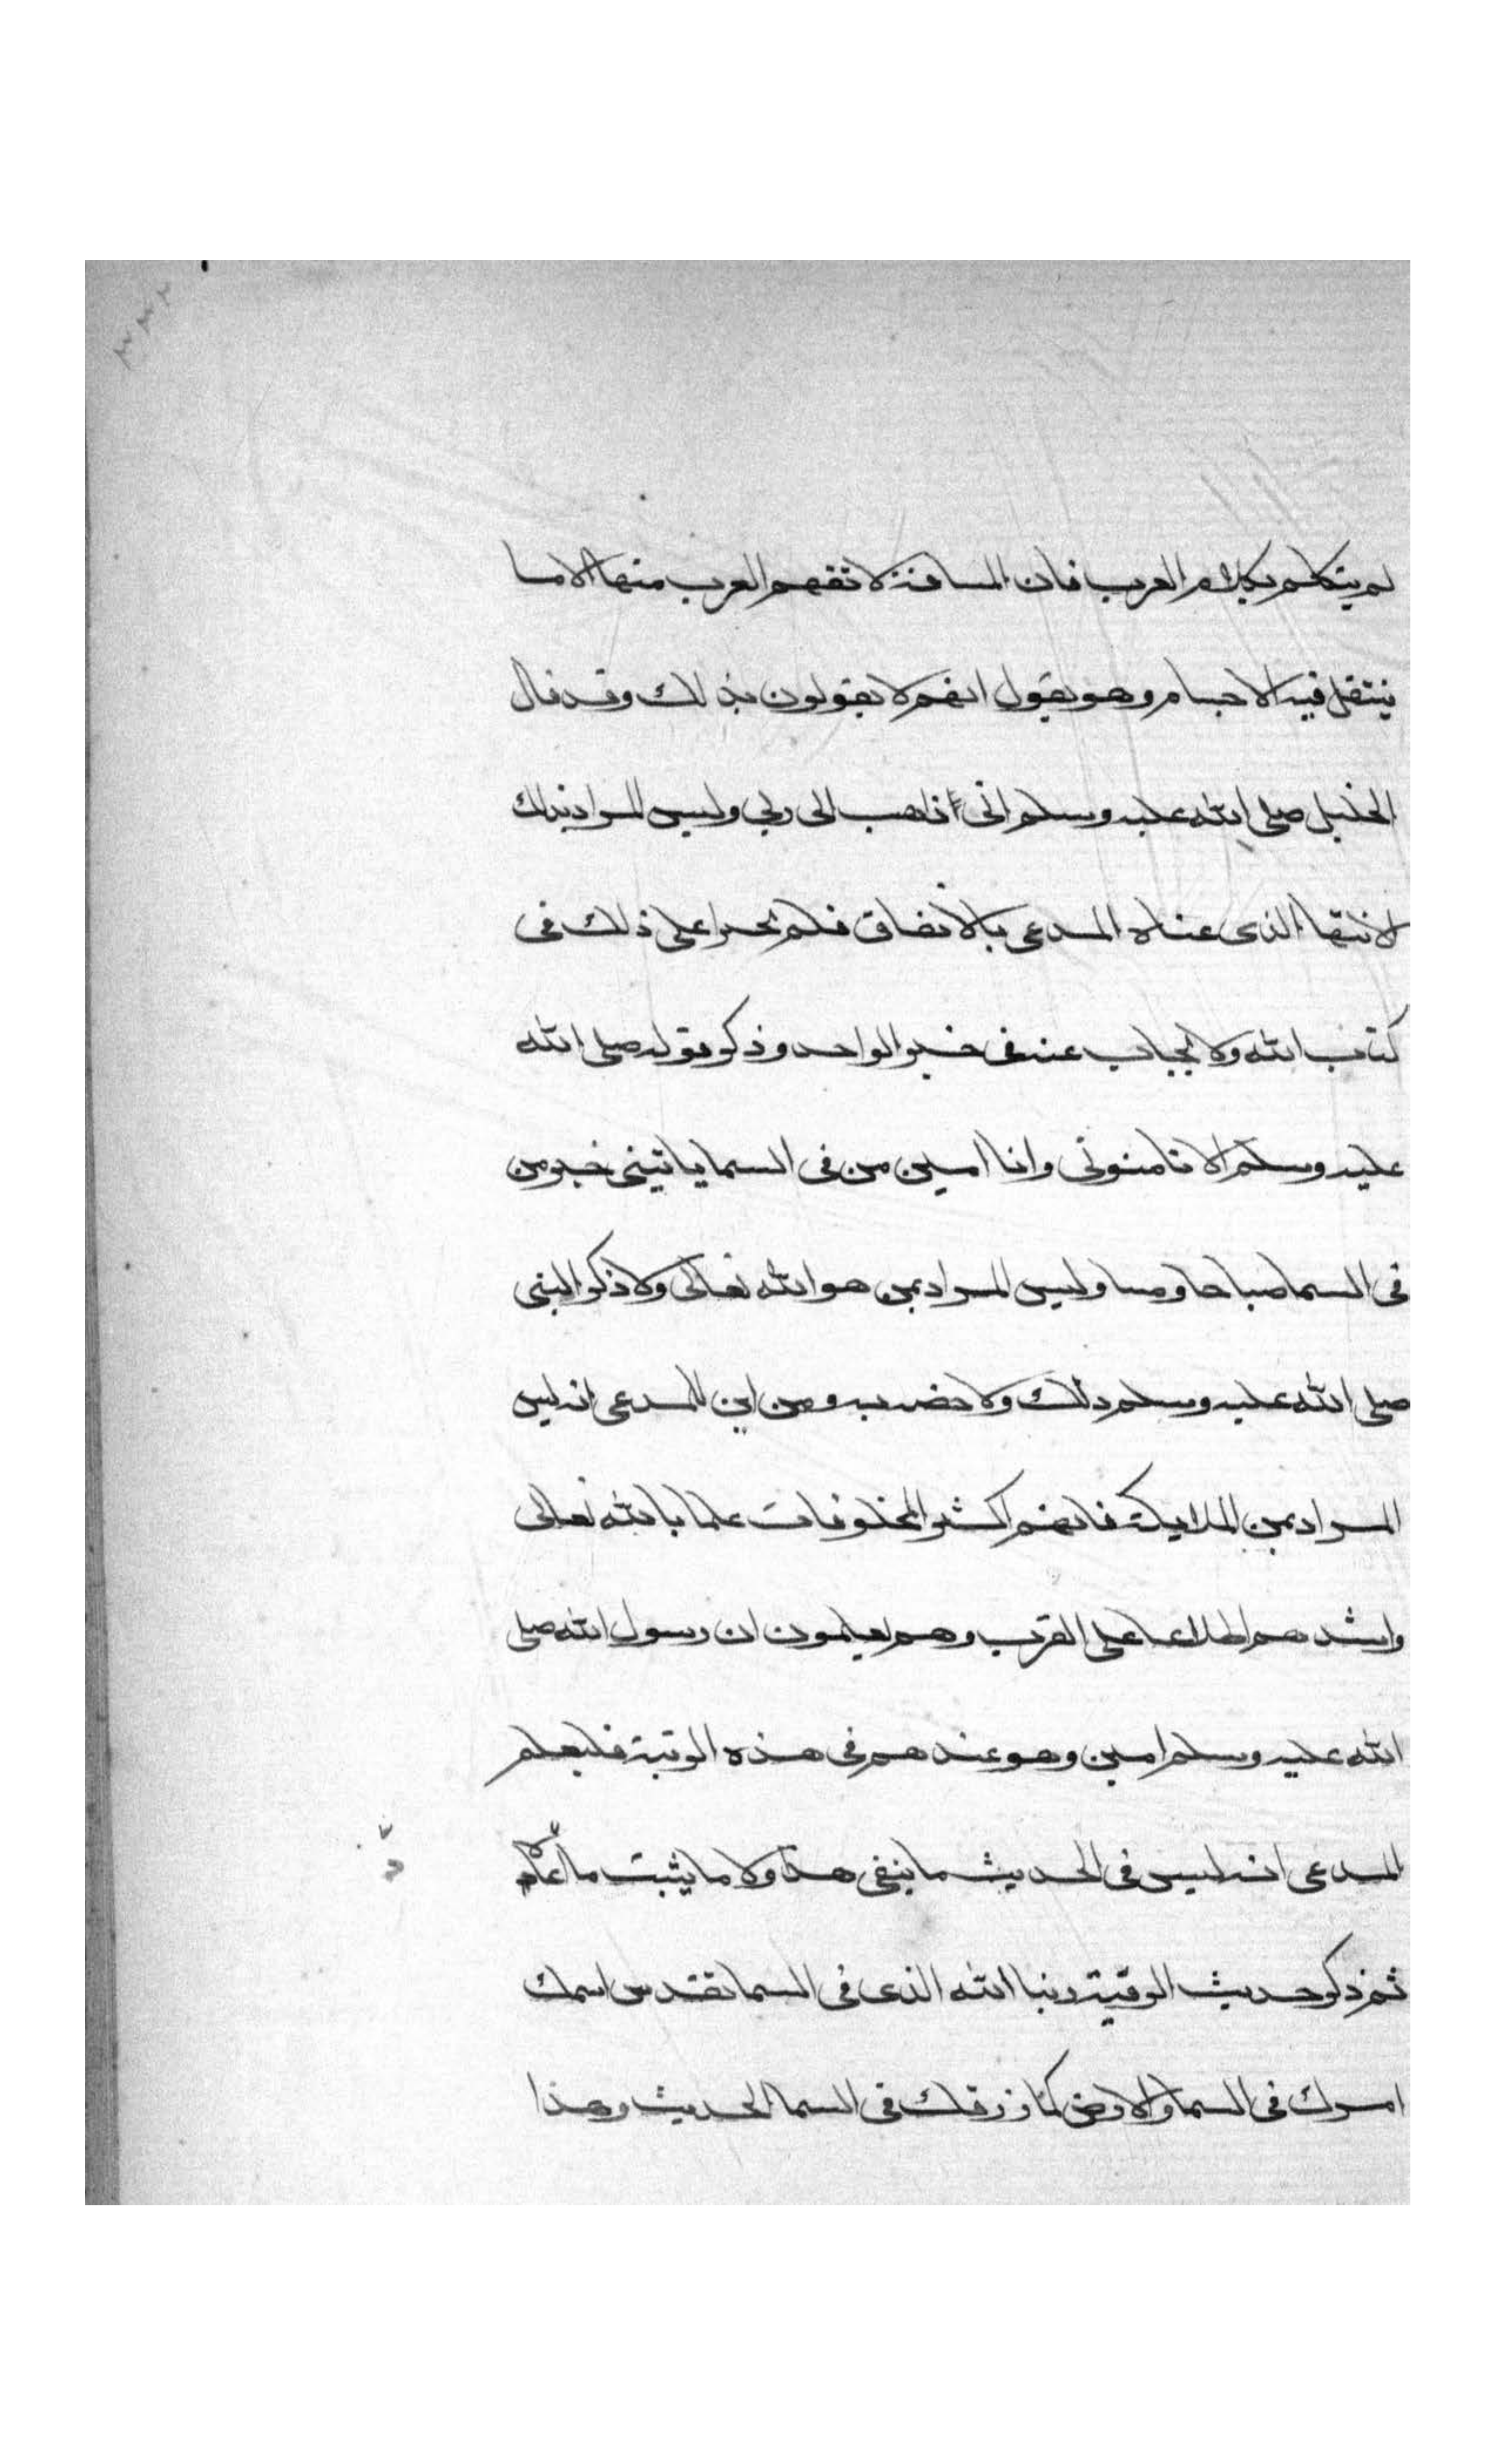 ٢٣٣
لم يتكلم بكلام العرب فان المسافة لا تفهم العرب منها الا ما
ينتقل فيه الاجسام وهو يقول انهم لا يقولون بذلك وقد قال
الخليل صلى الله عليه وسلم انى ذاهب الى ربي وليس المراد بذلك
الانتها الذى عناه المدعى بالاتفاق فلم يجرا على ذلك فى
كتاب الله ولا يجاب عنه فى خبر الواحد وذكر قوله صلى الله
عليه وسلم الا تامنونى وانا امين من فى السما ياتينى خبر من
فى السما صباحا ومسا وليس المراد بمن هو الله تعالى ولا ذكر النبى
صلى الله عليه وسلم ذلك ولا خصه به ومن اين للمدعى انه ليس
المراد بمن الملايكة فانهم اكثر المخلوقات علما بالله تعالى
واشدهم اطلاعا على القرب وهم يعلمون ان رسول الله صلى
الله عليه وسلم امين وهو عندهم فى هذه الرتبة فليعلم
المدعى انه ليس فى الحديث ما ينفى هذا ولا ما يثبت ما
ثم ذكر حديث الرقية ربنا الله الذى فى السما تقدس اسمك
امرك فى السما والارض كما رزقك فى السما الحديث وهذا